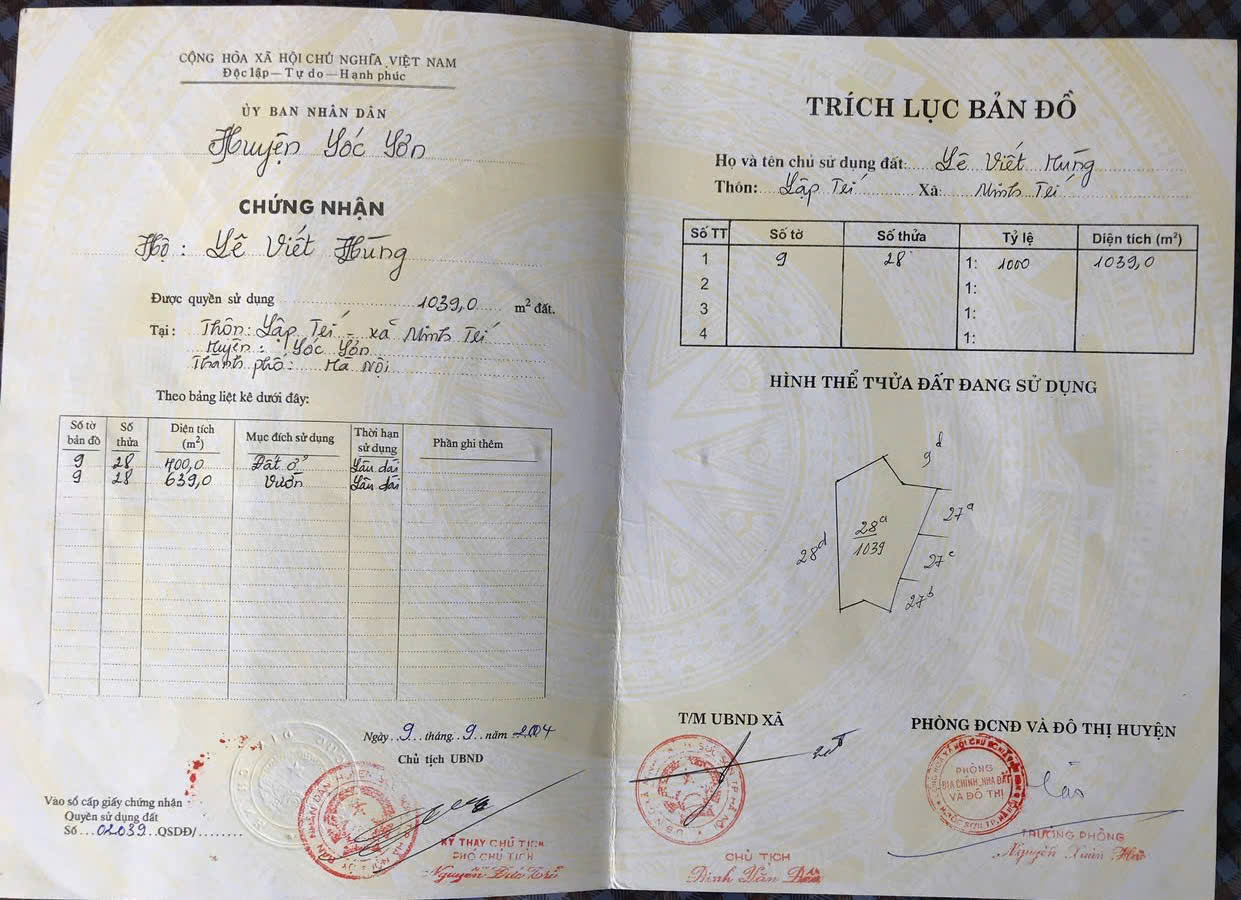 CỘNG HÒA XÃ HỘI CHỦ NGHĨA VIỆT NAM
Độc lập - Tự do - Hạnh phúc
ỦY BAN NHÂN DÂN
Huyện Sóc Sơn
CHỨNG NHẬN
Hộ: Lê Viết Hùng
Được quyền sử dụng 1039,0 m² đất.
Tại: Thôn: Lập Trí - xã Minh Trí
Huyện: Sóc Sơn
Thành phố: Hà Nội
Theo bảng liệt kê dưới đây:
Số tờ bản đồ Số thửa Diện tích (m²) Mục đích sử dụng Thời hạn sử dụng Phần ghi thêm
9 28 400,0 Đất ở Lâu dài
9 28 639,0 Vườn Lâu dài
Ngày 9 tháng 9 năm 2004
Chủ tịch UBND
Vào sổ cấp giấy chứng nhận
Quyền sử dụng đất
Số 02039 QSDĐ/
KÝ THAY CHỦ TỊCH
PHÓ CHỦ TỊCH
Nguyễn Đức
TRÍCH LỤC BẢN ĐỒ
Họ và tên chủ sử dụng đất: Lê Viết Hùng
Thôn: Lập Trí Xã: Minh Trí
Số TT Số tờ Số thửa Tỷ lệ Diện tích (m²)
1 9 28 1: 1000 1039,0
2 1:
3 1:
4 1:
HÌNH THỂ THỬA ĐẤT ĐANG SỬ DỤNG
9d
27a
28a
1039
28d
27c
27b
T/M UBND XÃ
PHÒNG ĐCNĐ VÀ ĐÔ THỊ HUYỆN
PHÒNG
ĐỊA CHÍNH, NHÀ ĐẤT
VÀ ĐÔ THỊ
CHỦ TỊCH
Đinh Văn
TRƯỞNG PHÒNG
Nguyễn Xuân